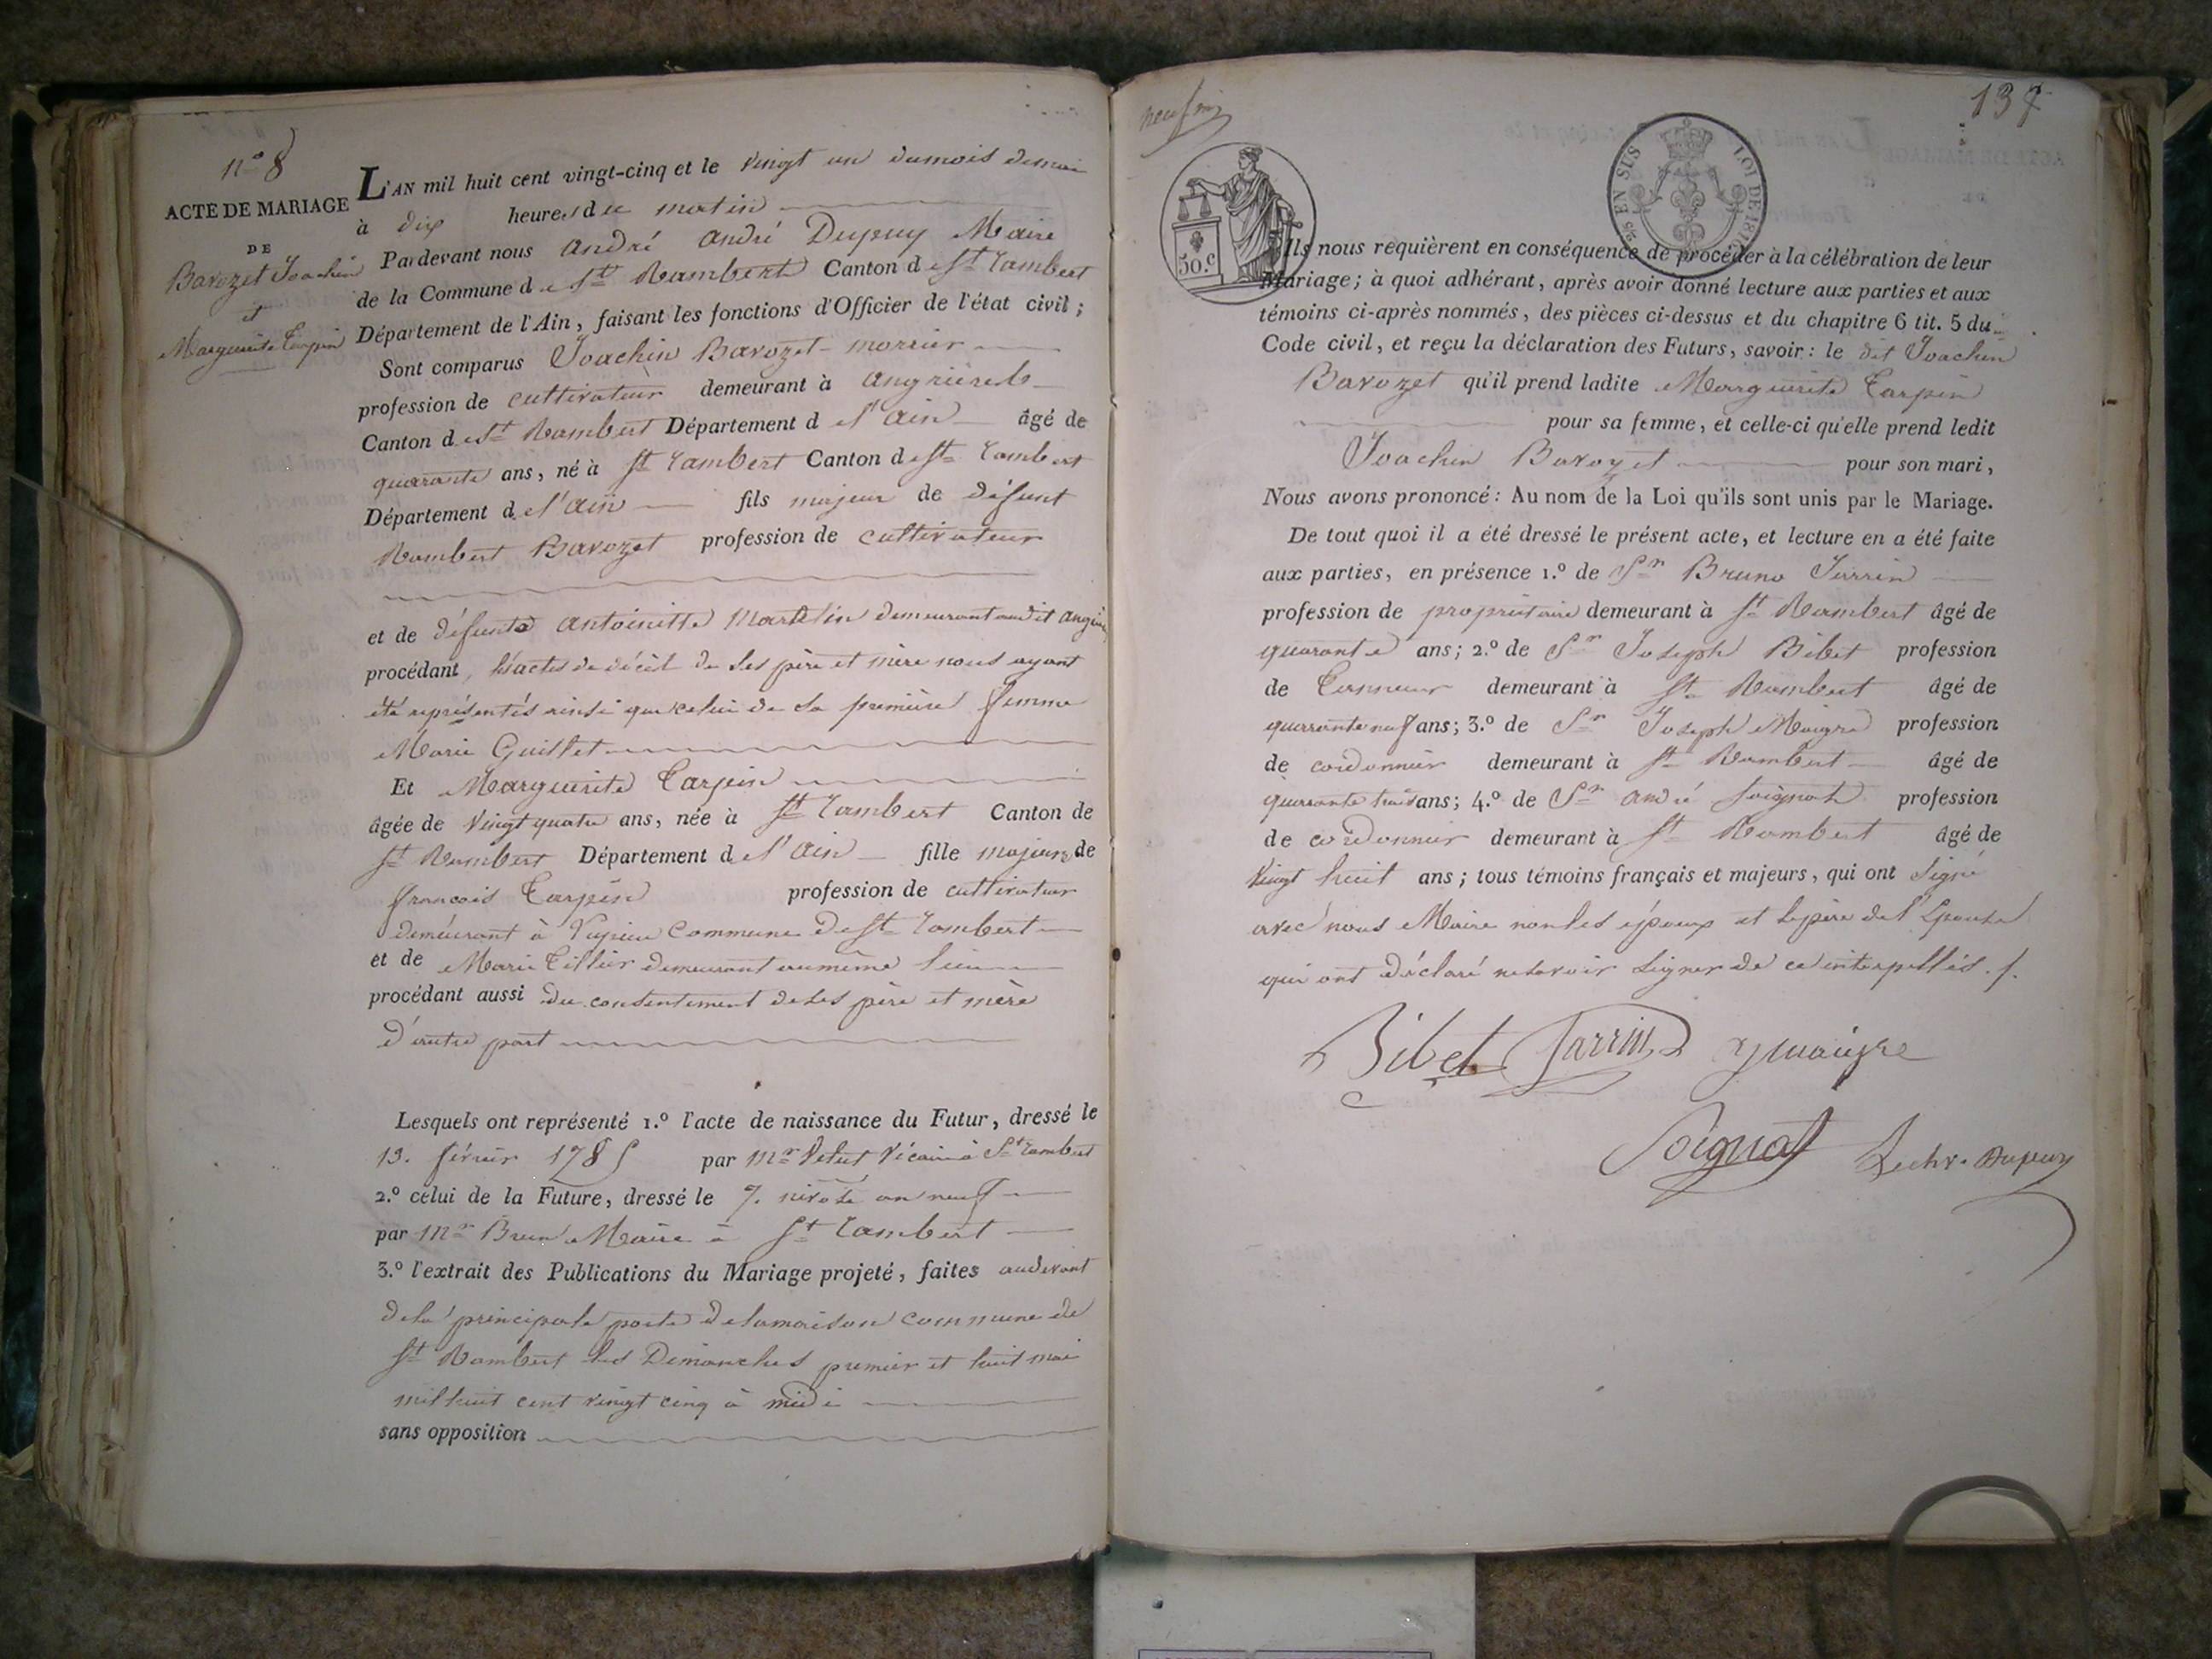 n.° 8
ACTE DE MARIAGE
DE
Barozet Joachin
et
Marguerite Tarpin
L'AN mil huit cent vingt-cinq et le vingt un du mois de mai
à dix heures du matin
Pardevant nous andré andré Dupuy Maire
de la Commune de St Rambert Canton de St Rambert
Département de l'Ain, faisant les fonctions d'Officier de l'état civil;
Sont comparus Joachin Barozet
profession de cultivateur demeurant à
Canton de St Rambert Département de l'ain âgé de
quarante ans, né à St Rambert Canton de St Rambert
Département de l'ain fils majeur de défunt
Rambert Barozet profession de cultivateur
et de défunte antoinette Martelin demeurant audit
procédant, les actes de décès de ses père et mère nous ayant
été représentés ainsi que celui de sa première femme
Marie Guillet
Et Marguerite Tarpin
âgée de vingt quatre ans, née à St Rambert Canton de
St Rambert Département de l'ain fille majeure de
françois Tarpin profession de cultivateur
demeurant à Commune de St Rambert
et de Marie Tillier demeurant au même lieu
procédant aussi du consentement de ses père et mère
d'autre part
Lesquels ont représenté 1.° l'acte de naissance du Futur, dressé le
13. février 1785 par Mr Velut Vicaire à St Rambert
2.° celui de la Future, dressé le 7. nivose an neuf
par Mr Brun Maire à St Rambert
3.° l'extrait des Publications du Mariage projeté, faites audevant
de la principale porte de la maison commune de
St Rambert les Dimanches premier et huit mai
mil huit cent vingt cinq à midi
sans opposition
137
50.c
EN SUS
LOI DE 181
Ils nous requièrent en conséquence de procéder à la célébration de leur
Mariage; à quoi adhérant, après avoir donné lecture aux parties et aux
témoins ci-après nommés, des pièces ci-dessus et du chapitre 6 tit. 5 du
Code civil, et reçu la déclaration des Futurs, savoir: le dit Joachin
Barozet qu'il prend ladite Marguerite Tarpin
pour sa femme, et celle-ci qu'elle prend ledit
Joachin Barozet pour son mari,
Nous avons prononcé: Au nom de la Loi qu'ils sont unis par le Mariage.
De tout quoi il a été dressé le présent acte, et lecture en a été faite
aux parties, en présence 1.° de Sr Bruno Jarrin
profession de propriétaire demeurant à St Rambert âgé de
quarante ans; 2.° de Sr Joseph Bibet profession
de Tanneur demeurant à St Rambert âgé de
quarante neuf ans; 3.° de Sr Joseph Maigre profession
de cordonnier demeurant à St Rambert âgé de
quarante trois ans; 4.° de Sr andré Soignat profession
de cordonnier demeurant à St Rambert âgé de
vingt huit ans; tous témoins français et majeurs, qui ont signé
avec nous Maire non les époux et le père de l'Epouse
qui ont déclaré ne savoir signer de ce interpellés.
Bibet Jarrin J maigre
Soignat Lechr. Dupuy